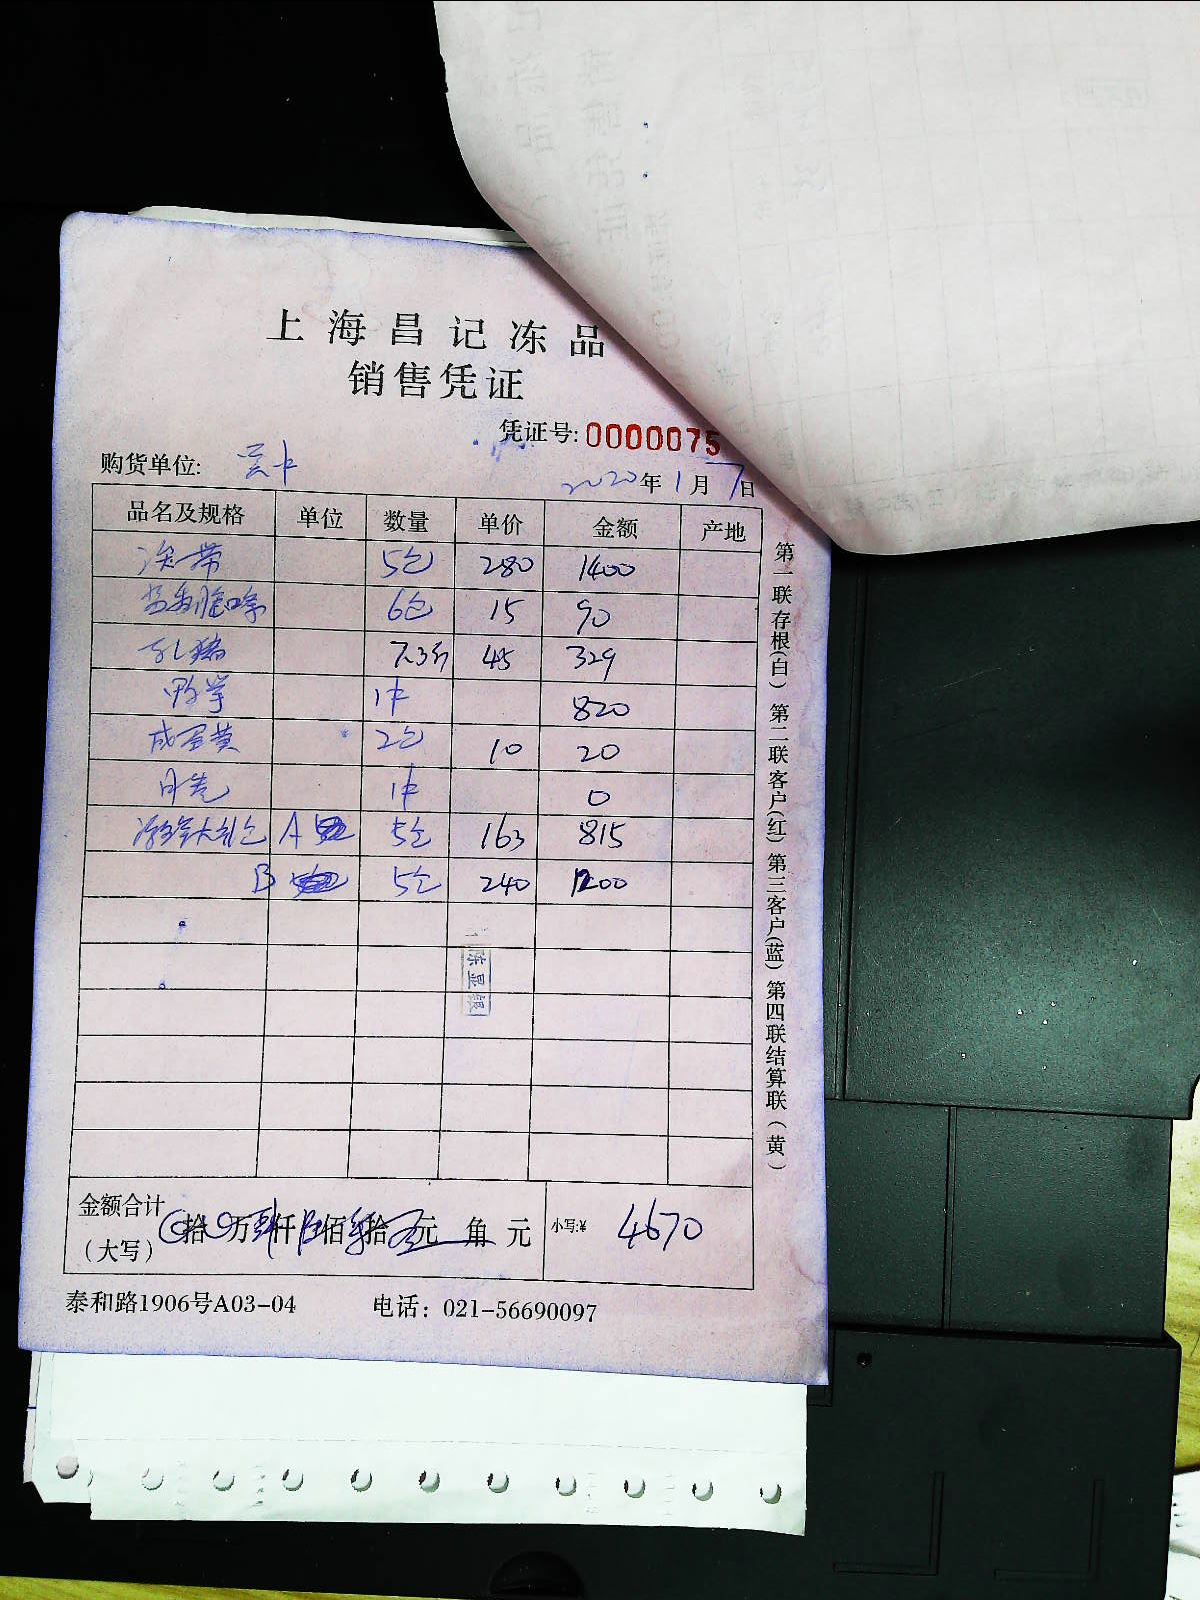 上海昌记冻品
销售凭证
凭证号: 0000075
购货单位:
2020年1月7日
品名及规格 单位 数量 单价 金额 产地
5包 280 1400
6包 15 90
乳猪 7.3斤 45 329
1件 820
咸蛋黄 2包 10 20
1件 0
大礼包 A 5包 163 815
B 5包 240 1200
陈显银
金额合计
(大写) 拾 万 仟 佰 拾 元 角 元 小写:¥ 4670
泰和路1906号A03-04 电话: 021-56690097
第一联存根(白) 第二联客户(红) 第三客户(蓝) 第四联结算联(黄)